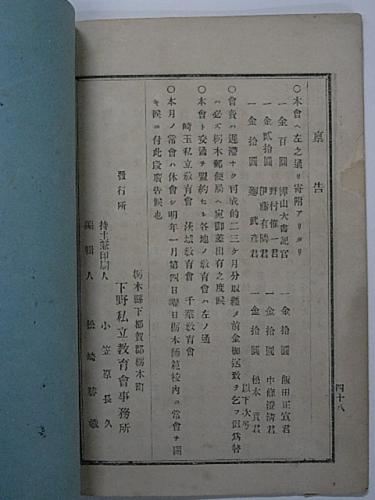 稟告
○本會ヘ左之通リ寄附アリタリ
一金百圓 樺山大書記官 一金拾圓 飯田正宣君
一金貳拾圓 野村惟一君 一金拾圓 中條澄清君
一金拾圓 伊藤有隣君 一金拾圓 松本貢君
一金拾圓 武彦君 以下次号
○會費ハ遲滯ナク可成的二三ケ月分取纒メ前金御送致ヲ乞フ但爲替
ハ必ズ栃木郵便局ヘ宛御差出有之度候
○本會ト交誼ヲ盟約セシ各地ノ教育會ハ左ノ通
埼玉私立教育會 茨城教育會 千葉教育會
○本月ノ常會ハ休會シ明年一月第四日曜日栃木師範校内ニ常會ヲ開
キ候ニ付此段廣告候也
栃木縣下都賀郡栃木町
發行所 下野私立教育會事務所
持主兼印刷人 小笠原長久
編輯人 松崎勝
四十八